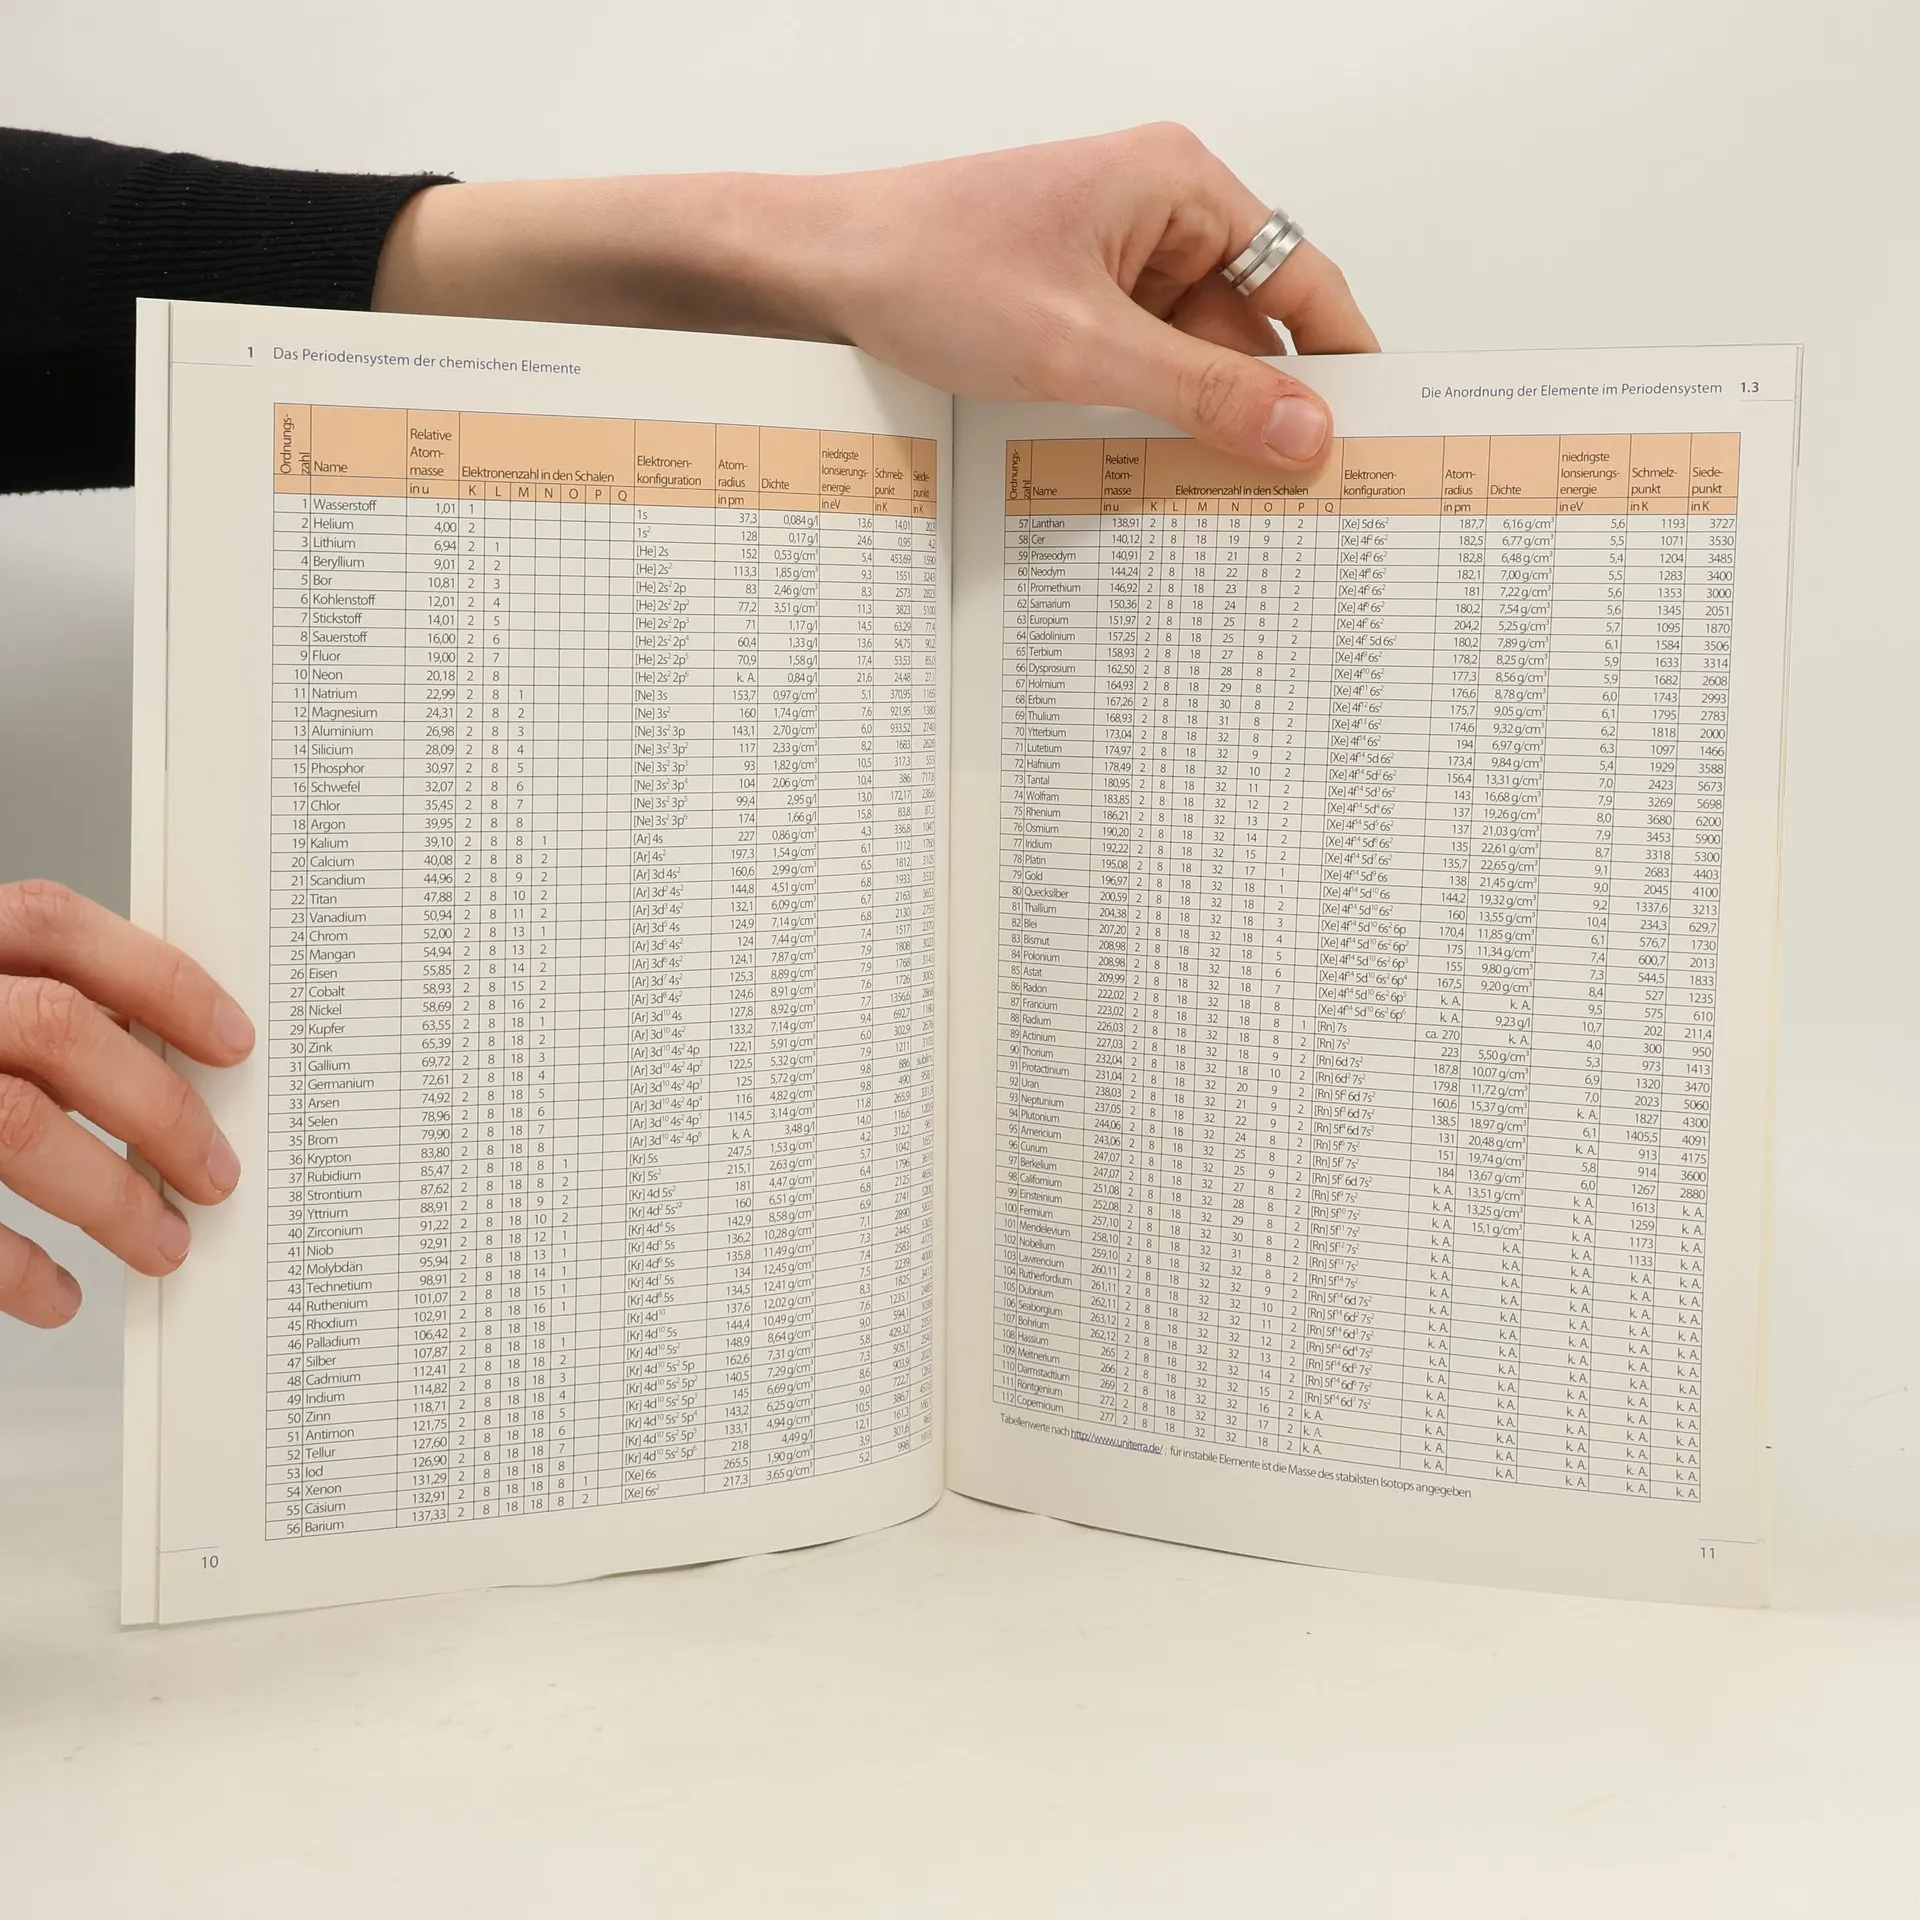 1 Das Periodensystem der chemischen Elemente
Ordnungszahl Name Relative Atommasse in u Elektronenzahl in den Schalen K L M N O P Q Elektronenkonfiguration Atomradius in pm Dichte niedrigste Ionisierungsenergie in eV Schmelzpunkt in K Siedepunkt in K
1 Wasserstoff 1,01 1 1s 37,3 0,084 g/l 13,6 14,01 20,3
2 Helium 4,00 2 1s² 128 0,17 g/l 24,6 0,95 4,2
3 Lithium 6,94 2 1 [He] 2s 152 0,53 g/cm³ 5,4 453,69 1590
4 Beryllium 9,01 2 2 [He] 2s² 113,3 1,85 g/cm³ 9,3 1551 3243
5 Bor 10,81 2 3 [He] 2s² 2p 83 2,46 g/cm³ 8,3 2573 2823
6 Kohlenstoff 12,01 2 4 [He] 2s² 2p² 77,2 3,51 g/cm³ 11,3 3823 5100
7 Stickstoff 14,01 2 5 [He] 2s² 2p³ 71 1,17 g/l 14,5 63,29 77,4
8 Sauerstoff 16,00 2 6 [He] 2s² 2p⁴ 60,4 1,33 g/l 13,6 54,75 90,2
9 Fluor 19,00 2 7 [He] 2s² 2p⁵ 70,9 1,58 g/l 17,4 53,53 85,0
10 Neon 20,18 2 8 [He] 2s² 2p⁶ k. A. 0,84 g/l 21,6 24,48 27,1
11 Natrium 22,99 2 8 1 [Ne] 3s 153,7 0,97 g/cm³ 5,1 370,95 1165
12 Magnesium 24,31 2 8 2 [Ne] 3s² 160 1,74 g/cm³ 7,6 921,95 1380
13 Aluminium 26,98 2 8 3 [Ne] 3s² 3p 143,1 2,70 g/cm³ 6,0 933,52 2740
14 Silicium 28,09 2 8 4 [Ne] 3s² 3p² 117 2,33 g/cm³ 8,2 1683 2628
15 Phosphor 30,97 2 8 5 [Ne] 3s² 3p³ 93 1,82 g/cm³ 10,5 317,3 553
16 Schwefel 32,07 2 8 6 [Ne] 3s² 3p⁴ 104 2,06 g/cm³ 10,4 386 717,8
17 Chlor 35,45 2 8 7 [Ne] 3s² 3p⁵ 99,4 2,95 g/l 13,0 172,17 238,6
18 Argon 39,95 2 8 8 [Ne] 3s² 3p⁶ 174 1,66 g/l 15,8 83,8 87,3
19 Kalium 39,10 2 8 8 1 [Ar] 4s 227 0,86 g/cm³ 4,3 336,8 1047
20 Calcium 40,08 2 8 8 2 [Ar] 4s² 197,3 1,54 g/cm³ 6,1 1112
21 Scandium 44,96 2 8 9 2 [Ar] 3d 4s² 160,6 2,99 g/cm³ 6,5 1812
22 Titan 47,88 2 8 10 2 [Ar] 3d² 4s² 144,8 4,51 g/cm³ 6,8 1933
23 Vanadium 50,94 2 8 11 2 [Ar] 3d³ 4s² 132,1 6,09 g/cm³ 6,7 2163
24 Chrom 52,00 2 8 13 1 [Ar] 3d⁵ 4s 124,9 7,14 g/cm³ 6,8 2130
25 Mangan 54,94 2 8 13 2 [Ar] 3d⁵ 4s² 124 7,44 g/cm³ 7,4 1517
26 Eisen 55,85 2 8 14 2 [Ar] 3d⁶ 4s² 124,1 7,87 g/cm³ 7,9 1808
27 Cobalt 58,93 2 8 15 2 [Ar] 3d⁷ 4s² 125,3 8,89 g/cm³ 7,9 1768
28 Nickel 58,69 2 8 16 2 [Ar] 3d⁸ 4s² 124,6 8,91 g/cm³ 7,6 1726
29 Kupfer 63,55 2 8 18 1 [Ar] 3d¹⁰ 4s 127,8 8,92 g/cm³ 7,7 1356,6
30 Zink 65,39 2 8 18 2 [Ar] 3d¹⁰ 4s² 133,2 7,14 g/cm³ 9,4 692,7
31 Gallium 69,72 2 8 18 3 [Ar] 3d¹⁰ 4s² 4p 122,1 5,91 g/cm³ 6,0 302,9
32 Germanium 72,61 2 8 18 4 [Ar] 3d¹⁰ 4s² 4p² 122,5 5,32 g/cm³ 7,9 1211
33 Arsen 74,92 2 8 18 5 [Ar] 3d¹⁰ 4s² 4p³ 125 5,72 g/cm³ 9,8 886
34 Selen 78,96 2 8 18 6 [Ar] 3d¹⁰ 4s² 4p⁴ 116 4,82 g/cm³ 9,8 490
35 Brom 79,90 2 8 18 7 [Ar] 3d¹⁰ 4s² 4p⁵ 114,5 3,14 g/cm³ 11,8 265,9
36 Krypton 83,80 2 8 18 8 [Ar] 3d¹⁰ 4s² 4p⁶ k. A. 3,48 g/l 14,0 116,6
37 Rubidium 85,47 2 8 18 8 1 [Kr] 5s 247,5 1,53 g/cm³ 4,2 312,2
38 Strontium 87,62 2 8 18 8 2 [Kr] 5s² 215,1 2,63 g/cm³ 5,7 1042
39 Yttrium 88,91 2 8 18 9 2 [Kr] 4d 5s² 181 4,47 g/cm³ 6,4 1796
40 Zirconium 91,22 2 8 18 10 2 160 6,51 g/cm³ 6,8 2125
41 Niob 92,91 2 8 18 12 1 [Kr] 4d⁴ 5s 142,9 8,58 g/cm³ 6,9 2741
42 Molybdän 95,94 2 8 18 13 1 [Kr] 4d⁵ 5s 136,2 10,28 g/cm³ 7,1 2890
43 Technetium 98,91 2 8 18 14 1 [Kr] 4d⁶ 5s 135,8 11,49 g/cm³ 7,3 2445
44 Ruthenium 101,07 2 8 18 15 1 [Kr] 4d⁷ 5s 134 12,45 g/cm³ 7,4 2583
45 Rhodium 102,91 2 8 18 16 1 [Kr] 4d⁸ 5s 134,5 12,41 g/cm³ 7,5 2239
46 Palladium 106,42 2 8 18 18 [Kr] 4d¹⁰ 137,6 12,02 g/cm³ 8,3 1825
47 Silber 107,87 2 8 18 18 1 [Kr] 4d¹⁰ 5s 144,4 10,49 g/cm³ 7,6 1235,1
48 Cadmium 112,41 2 8 18 18 2 [Kr] 4d¹⁰ 5s² 148,9 8,64 g/cm³ 9,0 594,1
49 Indium 114,82 2 8 18 18 3 [Kr] 4d¹⁰ 5s² 5p 162,6 7,31 g/cm³ 5,8 429,32
50 Zinn 118,71 2 8 18 18 4 [Kr] 4d¹⁰ 5s² 5p² 140,5 7,29 g/cm³ 7,3 505,1
51 Antimon 121,75 2 8 18 18 5 [Kr] 4d¹⁰ 5s² 5p³ 145 6,69 g/cm³ 8,6 903,9
52 Tellur 127,60 2 8 18 18 6 [Kr] 4d¹⁰ 5s² 5p⁴ 143,2 6,25 g/cm³ 9,0 722,7
53 Iod 126,90 2 8 18 18 7 [Kr] 4d¹⁰ 5s² 5p⁵ 133,1 4,94 g/cm³ 10,5 386,7
54 Xenon 131,29 2 8 18 18 8 [Kr] 4d¹⁰ 5s² 5p⁶ 218 4,49 g/l 12,1 161,3
55 Cäsium 132,91 2 8 18 18 8 1 [Xe] 6s 265,5 1,90 g/cm³ 3,9 301,6
56 Barium 137,33 2 8 18 18 8 2 [Xe] 6s² 217,3 3,65 g/cm³ 5,2 998
10
Die Anordnung der Elemente im Periodensystem 1.3
Ordnungszahl Name Relative Atommasse in u Elektronenzahl in den Schalen K L M N O P Q Elektronenkonfiguration Atomradius in pm Dichte niedrigste Ionisierungsenergie in eV Schmelzpunkt in K Siedepunkt in K
57 Lanthan 138,91 2 8 18 18 9 2 [Xe] 5d 6s² 187,7 6,16 g/cm³ 5,6 1193 3727
58 Cer 140,12 2 8 18 19 9 2 182,5 6,77 g/cm³ 5,5 1071 3530
59 Praseodym 140,91 2 8 18 21 8 2 182,8 6,48 g/cm³ 5,4 1204 3485
60 Neodym 144,24 2 8 18 22 8 2 182,1 7,00 g/cm³ 5,5 1283 3400
61 Promethium 146,92 2 8 18 23 8 2 181 7,22 g/cm³ 5,6 1353 3000
62 Samarium 150,36 2 8 18 24 8 2 180,2 7,54 g/cm³ 5,6 1345 2051
63 Europium 151,97 2 8 18 25 8 2 204,2 5,25 g/cm³ 5,7 1095 1870
64 Gadolinium 157,25 2 8 18 25 9 2 [Xe] 4f⁷ 5d 6s² 180,2 7,89 g/cm³ 6,1 1584 3506
65 Terbium 158,93 2 8 18 27 8 2 [Xe] 4f⁹ 6s² 178,2 8,25 g/cm³ 5,9 1633 3314
66 Dysprosium 162,50 2 8 18 28 8 2 [Xe] 4f¹⁰ 6s² 177,3 8,56 g/cm³ 5,9 1682 2608
67 Holmium 164,93 2 8 18 29 8 2 [Xe] 4f¹¹ 6s² 176,6 8,78 g/cm³ 6,0 1743 2993
68 Erbium 167,26 2 8 18 30 8 2 [Xe] 4f¹² 6s² 175,7 9,05 g/cm³ 6,1 1795 2783
69 Thulium 168,93 2 8 18 31 8 2 [Xe] 4f¹³ 6s² 174,6 9,32 g/cm³ 6,2 1818 2000
70 Ytterbium 173,04 2 8 18 32 8 2 [Xe] 4f¹⁴ 6s² 194 6,97 g/cm³ 6,3 1097 1466
71 Lutetium 174,97 2 8 18 32 9 2 [Xe] 4f¹⁴ 5d 6s² 173,4 9,84 g/cm³ 5,4 1929 3588
72 Hafnium 178,49 2 8 18 32 10 2 [Xe] 4f¹⁴ 5d² 6s² 156,4 13,31 g/cm³ 7,0 2423 5673
73 Tantal 180,95 2 8 18 32 11 2 [Xe] 4f¹⁴ 5d³ 6s² 143 16,68 g/cm³ 7,9 3269 5698
74 Wolfram 183,85 2 8 18 32 12 2 [Xe] 4f¹⁴ 5d⁴ 6s² 137 19,26 g/cm³ 8,0 3680 6200
75 Rhenium 186,21 2 8 18 32 13 2 [Xe] 4f¹⁴ 5d⁵ 6s² 137 21,03 g/cm³ 7,9 3453 5900
76 Osmium 190,20 2 8 18 32 14 2 [Xe] 4f¹⁴ 5d⁶ 6s² 135 22,61 g/cm³ 8,7 3318 5300
77 Iridium 192,22 2 8 18 32 15 2 [Xe] 4f¹⁴ 5d⁷ 6s² 135,7 22,65 g/cm³ 9,1 2683 4403
78 Platin 195,08 2 8 18 32 17 1 [Xe] 4f¹⁴ 5d⁹ 6s 138 21,45 g/cm³ 9,0 2045 4100
79 Gold 196,97 2 8 18 32 18 1 [Xe] 4f¹⁴ 5d¹⁰ 6s 144,2 19,32 g/cm³ 9,2 1337,6 3213
80 Quecksilber 200,59 2 8 18 32 18 2 [Xe] 4f¹⁴ 5d¹⁰ 6s² 160 13,55 g/cm³ 10,4 234,3 629,7
81 Thallium 204,38 2 8 18 32 18 3 [Xe] 4f¹⁴ 5d¹⁰ 6s² 6p 170,4 11,85 g/cm³ 6,1 576,7 1730
82 Blei 207,20 2 8 18 32 18 4 [Xe] 4f¹⁴ 5d¹⁰ 6s² 6p² 175 11,34 g/cm³ 7,4 600,7 2013
83 Bismut 208,98 2 8 18 32 18 5 [Xe] 4f¹⁴ 5d¹⁰ 6s² 6p³ 155 9,80 g/cm³ 7,3 544,5 1833
84 Polonium 208,98 2 8 18 32 18 6 [Xe] 4f¹⁴ 5d¹⁰ 6s² 6p⁴ 167,5 9,20 g/cm³ 8,4 527 1235
85 Astat 209,99 2 8 18 32 18 7 [Xe] 4f¹⁴ 5d¹⁰ 6s² 6p⁵ k. A. k. A. 9,5 575 610
86 Radon 222,02 2 8 18 32 18 8 [Xe] 4f¹⁴ 5d¹⁰ 6s² 6p⁶ k. A. 9,23 g/l 10,7 202 211,4
87 Francium 223,02 2 8 18 32 18 8 1 [Rn] 7s ca. 270 k. A. 4,0 300 950
88 Radium 226,03 2 8 18 32 18 8 2 [Rn] 7s² 223 5,50 g/cm³ 5,3 973 1413
89 Actinium 227,03 2 8 18 32 18 9 2 [Rn] 6d 7s² 187,8 10,07 g/cm³ 6,9 1320 3470
90 Thorium 232,04 2 8 18 32 18 10 2 [Rn] 6d² 7s² 179,8 11,72 g/cm³ 7,0 2023 5060
91 Protactinium 231,04 2 8 18 32 20 9 2 [Rn] 5f² 6d 7s² 160,6 15,37 g/cm³ k. A. 1827 4300
92 Uran 238,03 2 8 18 32 21 9 2 [Rn] 5f³ 6d 7s² 138,5 18,97 g/cm³ 6,1 1405,5 4091
93 Neptunium 237,05 2 8 18 32 22 9 2 [Rn] 5f⁴ 6d 7s² 131 20,48 g/cm³ k. A. 913 4175
94 Plutonium 244,06 2 8 18 32 24 8 2 [Rn] 5f⁶ 7s² 151 19,74 g/cm³ 5,8 914 3600
95 Americium 243,06 2 8 18 32 25 8 2 [Rn] 5f⁷ 7s² 184 13,67 g/cm³ 6,0 1267 2880
96 Curium 247,07 2 8 18 32 25 9 2 [Rn] 5f⁷ 6d 7s² k. A. 13,51 g/cm³ k. A. 1613 k. A.
97 Berkelium 247,07 2 8 18 32 27 8 2 [Rn] 5f⁹ 7s² k. A. 13,25 g/cm³ k. A. 1259 k. A.
98 Californium 251,08 2 8 18 32 28 8 2 [Rn] 5f¹⁰ 7s² k. A. 15,1 g/cm³ k. A. 1173 k. A.
99 Einsteinium 252,08 2 8 18 32 29 8 2 [Rn] 5f¹¹ 7s² k. A. k. A. k. A. 1133 k. A.
100 Fermium 257,10 2 8 18 32 30 8 2 [Rn] 5f¹² 7s² k. A. k. A. k. A. k. A. k. A.
101 Mendelevium 258,10 2 8 18 32 31 8 2 [Rn] 5f¹³ 7s² k. A. k. A. k. A. k. A. k. A.
102 Nobelium 259,10 2 8 18 32 32 8 2 [Rn] 5f¹⁴ 7s² k. A. k. A. k. A. k. A. k. A.
103 Lawrencium 260,11 2 8 18 32 32 9 2 [Rn] 5f¹⁴ 6d 7s² k. A. k. A. k. A. k. A. k. A.
104 Rutherfordium 261,11 2 8 18 32 32 10 2 k. A. k. A. k. A. k. A. k. A.
105 Dubnium 262,11 2 8 18 32 32 11 2 k. A. k. A. k. A. k. A. k. A.
106 Seaborgium 263,12 2 8 18 32 32 12 2 k. A. k. A. k. A. k. A. k. A.
107 Bohrium 262,12 2 8 18 32 32 13 2 k. A. k. A. k. A. k. A. k. A.
108 Hassium 265 2 8 18 32 32 14 2 k. A. k. A. k. A. k. A. k. A.
109 Meitnerium 266 2 8 18 32 32 15 2 k. A. k. A. k. A. k. A. k. A.
110 Darmstadtium 269 2 8 18 32 32 16 2 k. A. k. A. k. A. k. A. k. A. k. A.
111 Röntgenium 272 2 8 18 32 32 17 2 k. A. k. A. k. A. k. A. k. A. k. A.
112 Copernicium 277 2 8 18 32 32 18 2 k. A. k. A. k. A. k. A. k. A. k. A.
Tabellenwerte nach http://www.uniterra.de/ ; für instabile Elemente ist die Masse des stabilsten Isotops angegeben
11